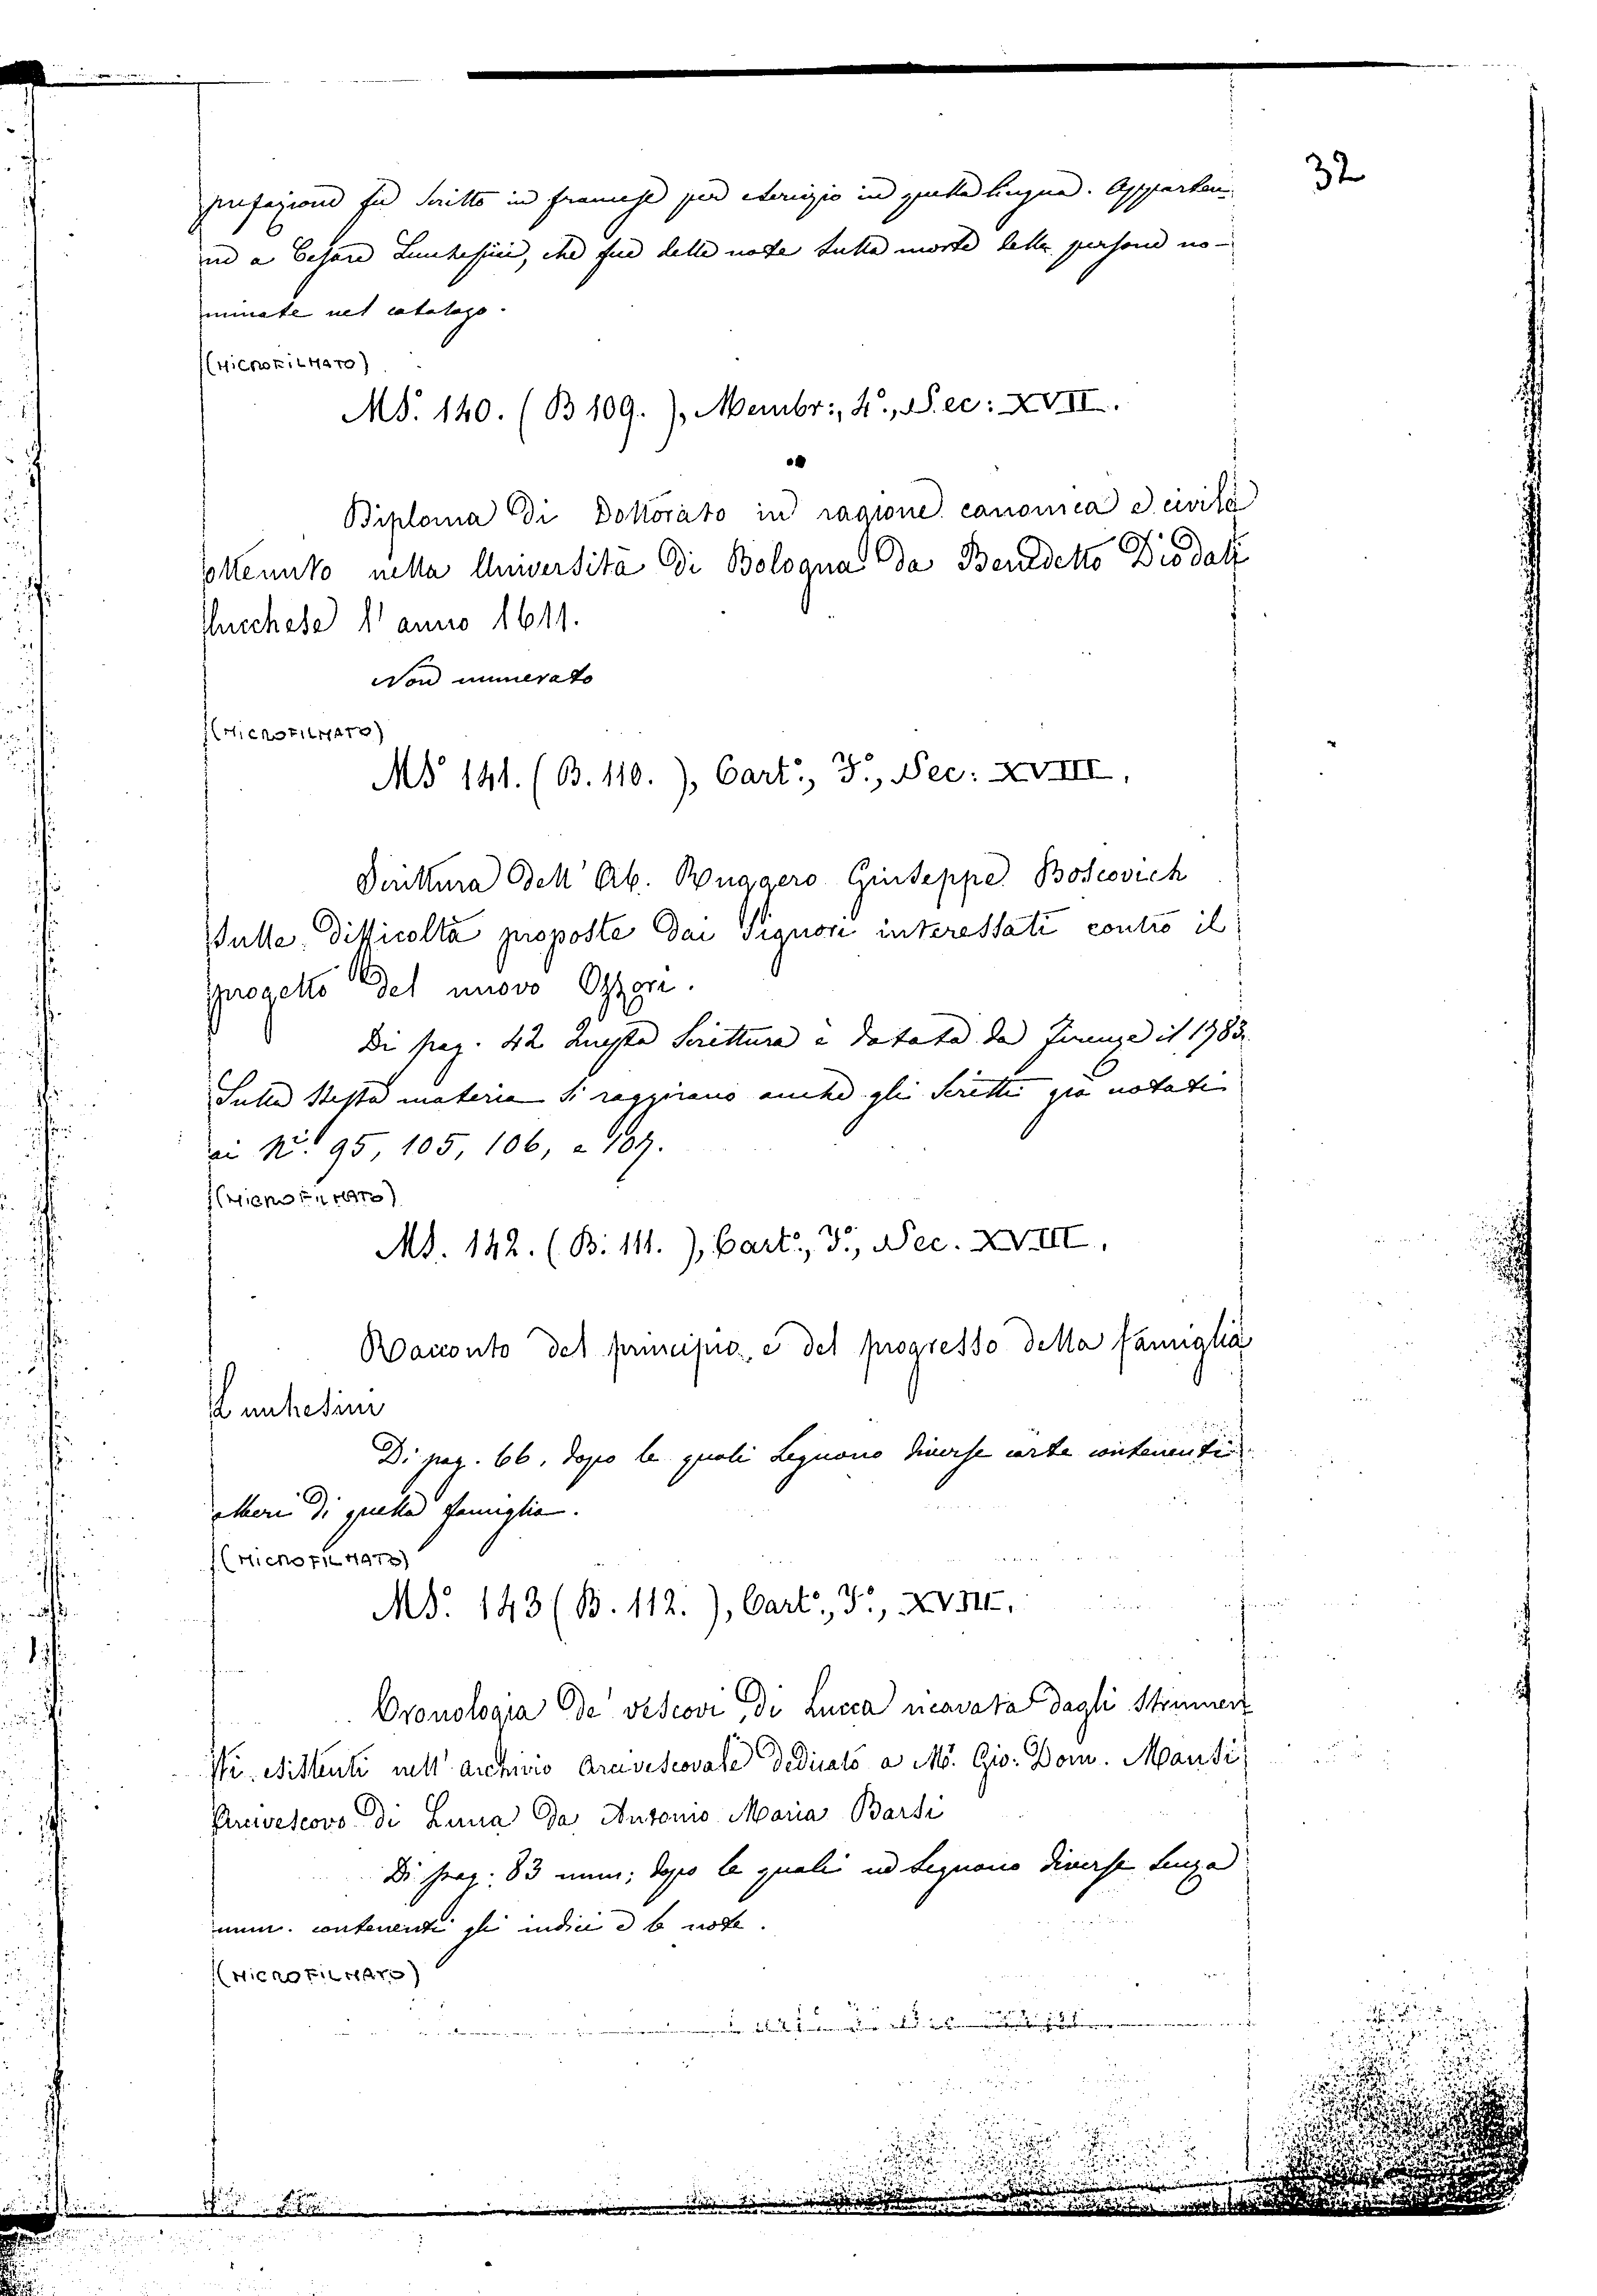 32
prefazione fu scritto in francese per esercizio in quella lingua. Apparten-
ne a Cesare Lucchesini, che fue delle note sulla morte delle persone no-
minate nel catalogo.
(MICROFILMATO)
MS. 140. (B 109.), Membr:, 4°., Sec: XVII.
Diploma di Dottorato in ragione canonica e civile
ottenuto nella Università di Bologna da Benedetto Diodati
lucchese l'anno 1611.
Non numerato
(MICROFILMATO)
MS 141. (B. 110.), Cart:, F°., Sec: XVIII.
Scrittura dell' Ab. Ruggero Giuseppe Boscovich
sulle difficoltà proposte dai Signori interessati contro il
progetto del nuovo Ozzori.
Di pag. 42 Questa Scrittura è datata da Firenze il 1783.
Sulla stessa materia si raggirano anche gli scritti già notati
ai Ni. 95, 105, 106, e 107.
(MICROFILMATO)
MS. 142. (B. 111.), Cart:, F°., Sec. XVIII.
Racconto del principio, e del progresso della famiglia
Lucchesini
Di pag. 66, dopo le quali seguono diverse carte contenenti
alberi di quella famiglia.
(MICROFILMATO)
MS. 143 (B. 112.), Cart:, F°., XVIII.
Cronologia de' vescovi di Lucca ricavata dagli strumen
ti esistenti nell' archivio arcivescovale dedicato a M. Gio: Dom. Mansi
Arcivescovo di Lucca da Antonio Maria Barsi
Di pag. 83 num; dopo le quali ne seguono diverse senza
num. contenenti gli indici e le note.
(MICROFILMATO)